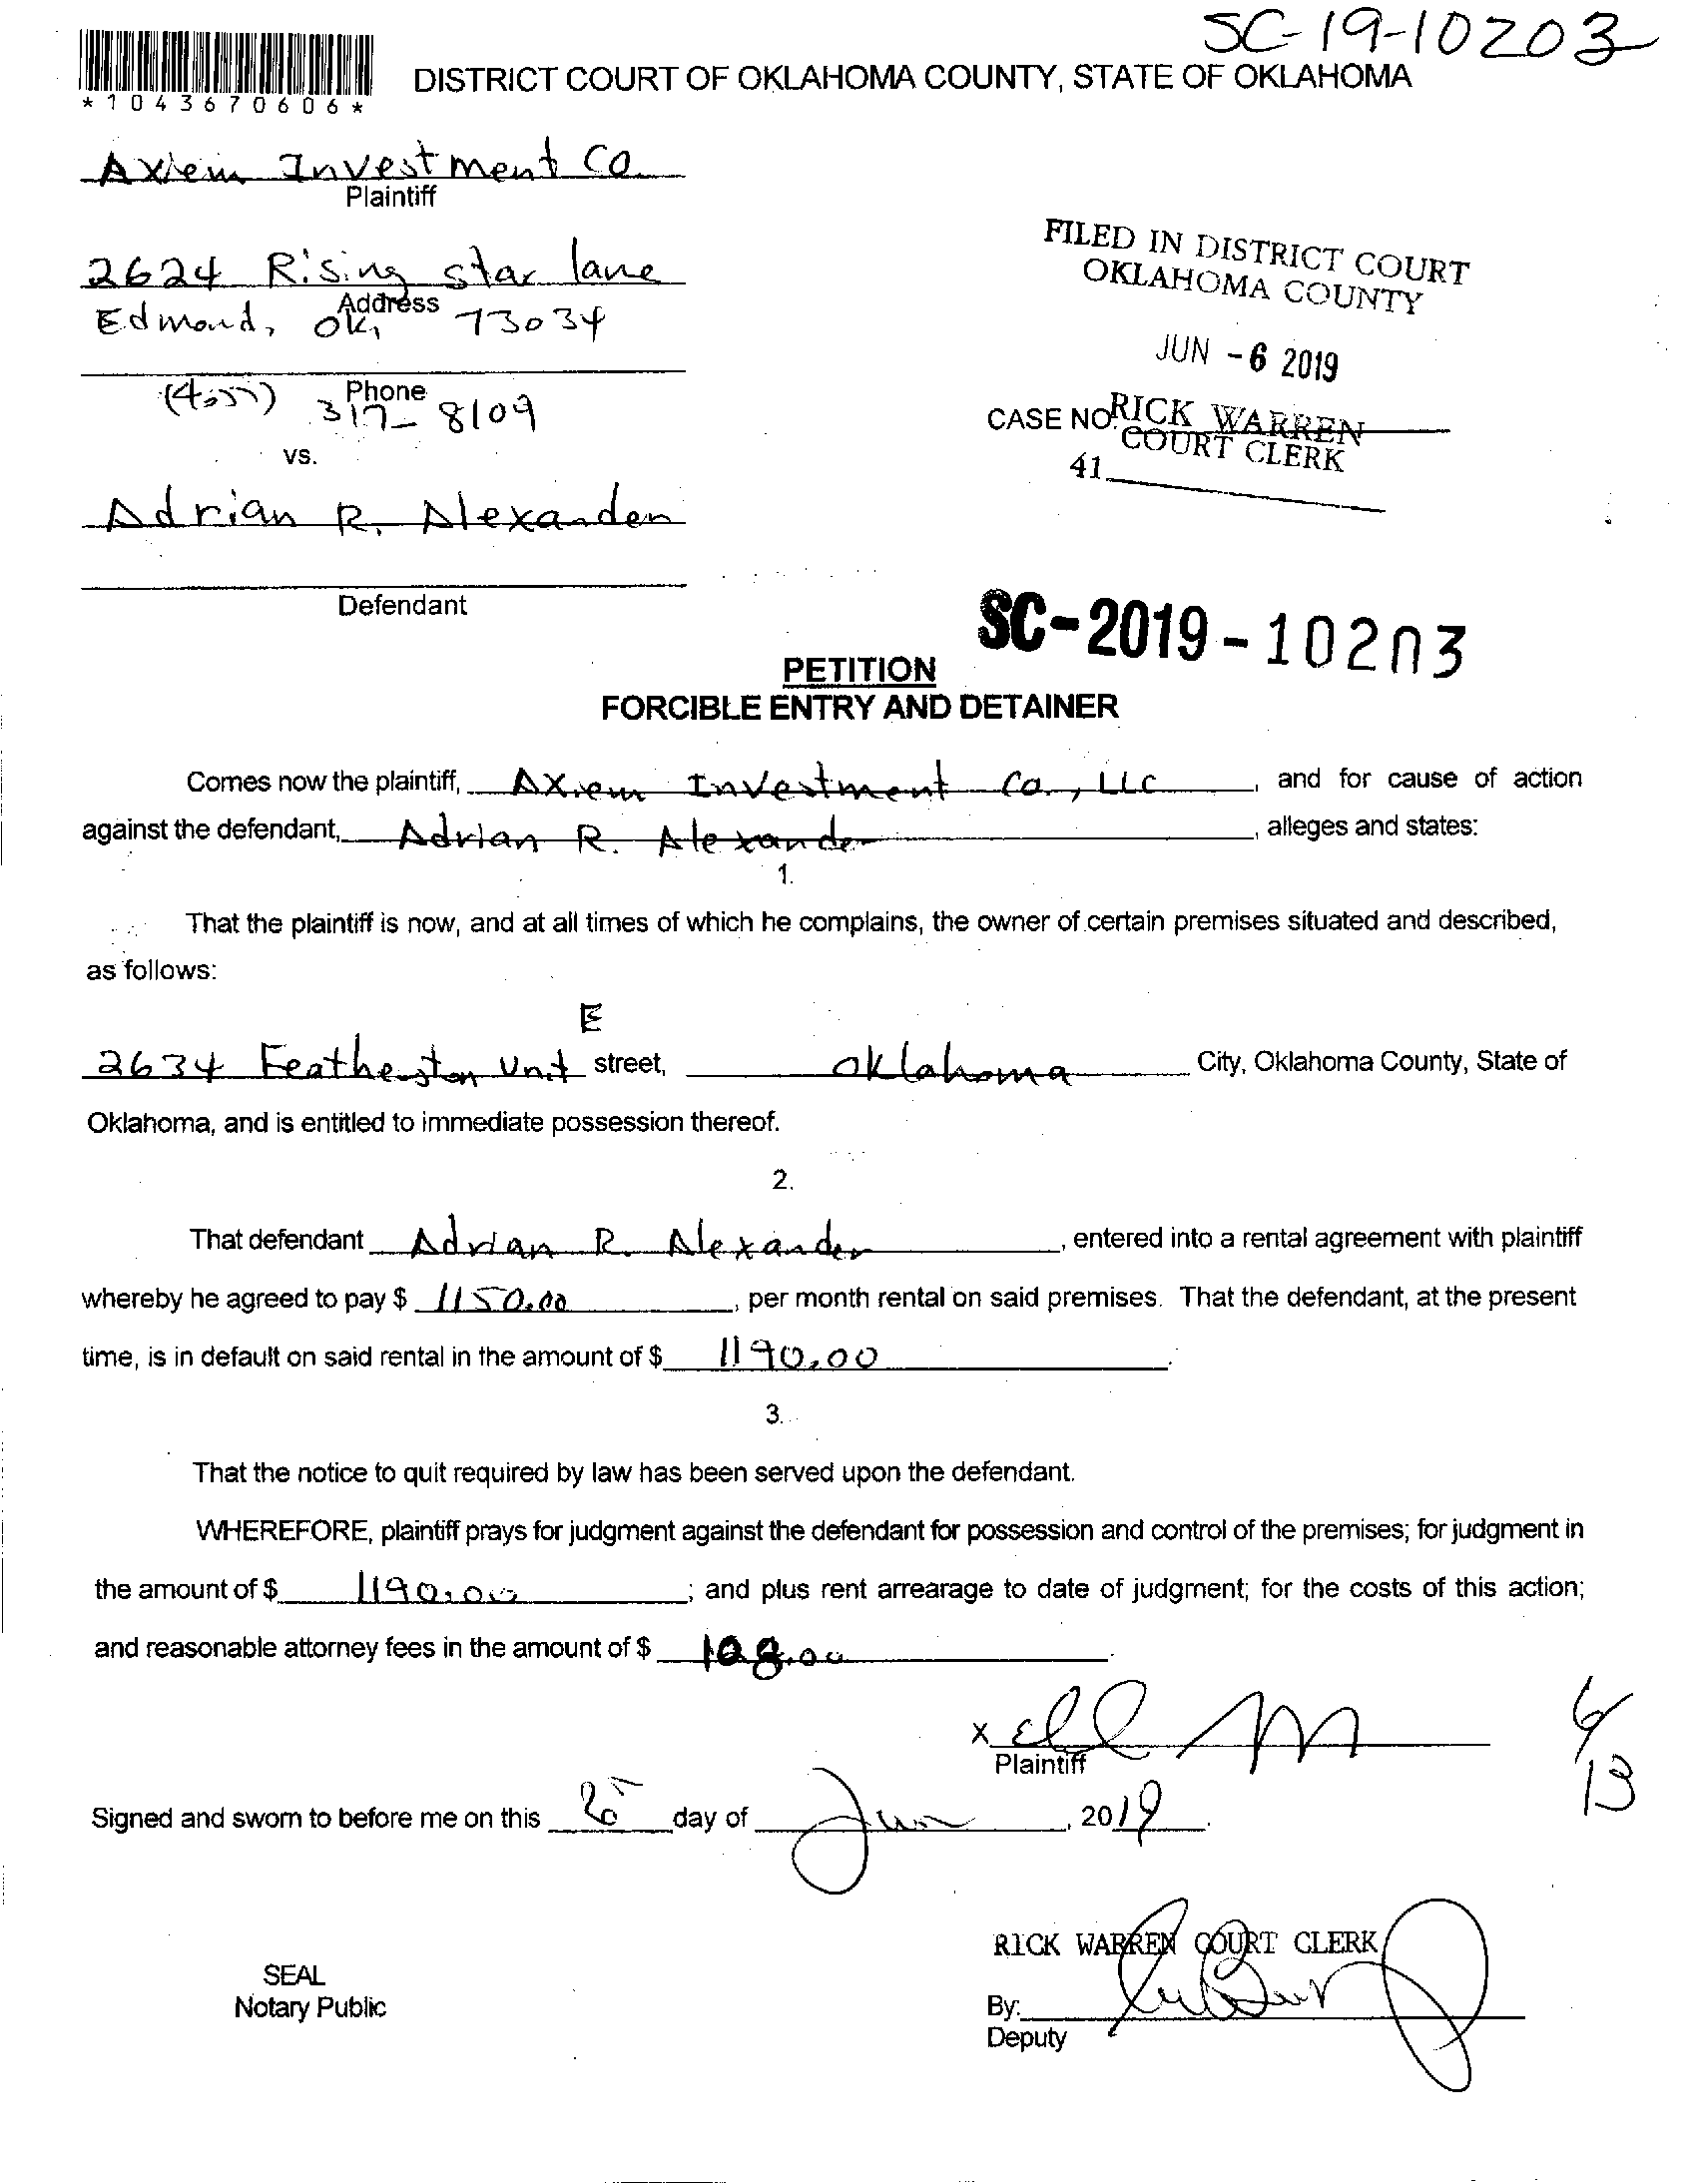 SC-19-10203
*1043670606*
DISTRICT COURT OF OKLAHOMA COUNTY, STATE OF OKLAHOMA
Axiem Investment Co.
Plaintiff
2624 Rising star lane
Address
Edmond, OK, 73034
Phone
(405) 317-8109
vs.
Adrian R. Alexander
Defendant
FILED IN DISTRICT COURT
OKLAHOMA COUNTY
JUN -6 2019
RICK WARREN
COURT CLERK
CASE NO.
41
SC-2019-10203
PETITION
FORCIBLE ENTRY AND DETAINER
Comes now the plaintiff, Axiem Investment Co., LLC, and for cause of action
against the defendant, Adrian R. Alexander, alleges and states:
1.
That the plaintiff is now, and at all times of which he complains, the owner of certain premises situated and described,
as follows:
E
2634 Featherston Unit street, Oklahoma City, Oklahoma County, State of
Oklahoma, and is entitled to immediate possession thereof.
2.
That defendant Adrian R. Alexander, entered into a rental agreement with plaintiff
whereby he agreed to pay $ 1150.00, per month rental on said premises. That the defendant, at the present
time, is in default on said rental in the amount of $ 1190.00.
3.
That the notice to quit required by law has been served upon the defendant.
WHEREFORE, plaintiff prays for judgment against the defendant for possession and control of the premises; for judgment in
the amount of $ 1190.00; and plus rent arrearage to date of judgment; for the costs of this action;
and reasonable attorney fees in the amount of $
X
Plaintiff
6/13
Signed and sworn to before me on this day of Jun, 2019.
RICK WARREN COURT CLERK
SEAL
Notary Public
By:
Deputy